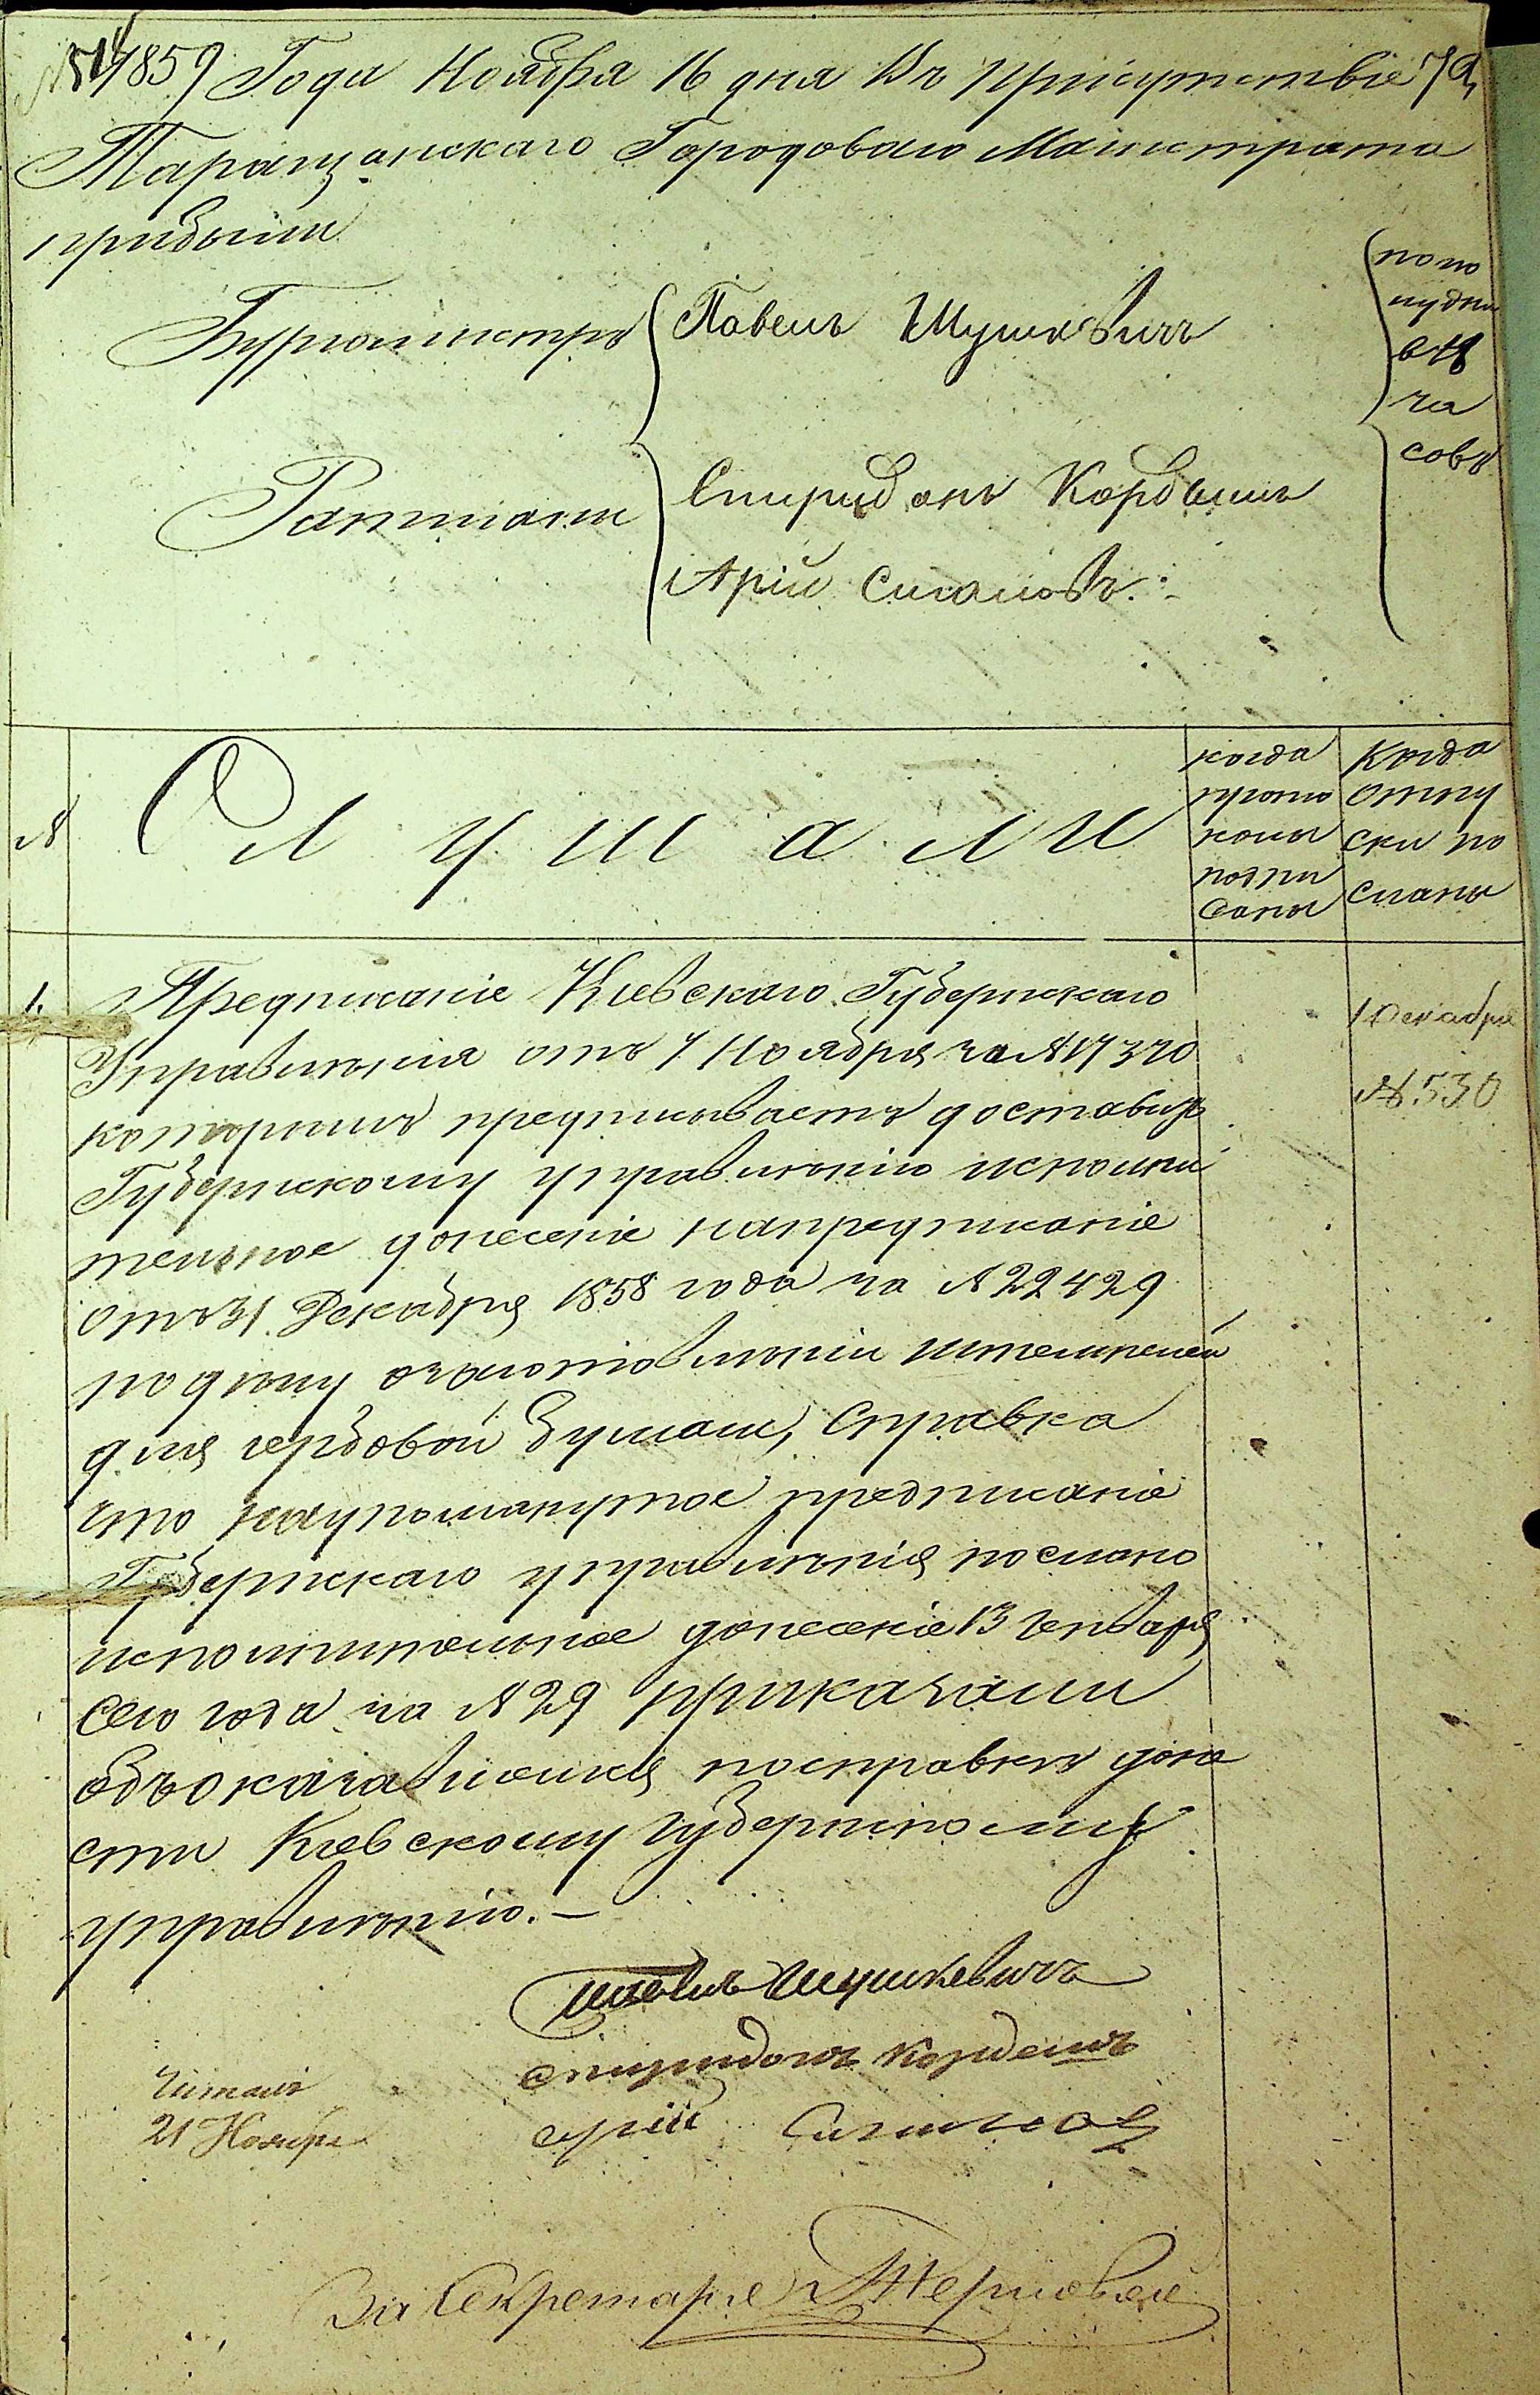 1859 Года Ноября 16 дня Въ присутствіе
Таращанскаго Городоваго Магистрата
прибыли
Бургомистръ
Павелъ Шушкѣвичъ
Ратманы
Спиридонъ Кордышъ
Арій Сигаловъ.
попо
лудни
въ
ча
совъ
№
Слушали
когда
прото
колы
подпи
саны
Когда
отпу
ски по
сланы
1.
Предписаніе Кіевскаго Губернскаго
Управленія отъ 7 Ноября за № 17370
которымъ предписываетъ доставить
Губернскому управленію исполни
тельное донесеніе напредписаніе
отъ 31 Декабря 1858 года за № 22429
подѣлу о
штемпелей
для гербовой бумаги, Справка
что наупомянутое предписаніе
Губернскаго управленія послано
исполнительное донесеніе 13 Генваря
сего года за № 29 приказали
объоказавшемся посправкѣ доне
сти Кіевскому Губернскому
управленію.—
1 Декабря
№ 530
Павелъ Шушкевичъ
спиридонъ Кордешъ
арій Сигалов
Читалъ
21 Ноября
За Секретаря